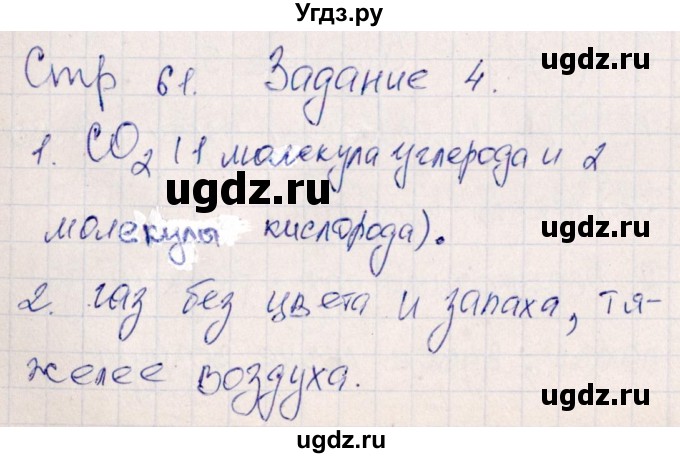 Угдз.ру
Стр 61. Задание 4.
ugdz.ru
1. CO2 (1 молекула углерода и 2
ugdz.ru
молекулы кислорода).
ugdz.ru
2. газ без цвета и запаха, тя-
желее воздуха.
ugdz.ru
ugdz.ru